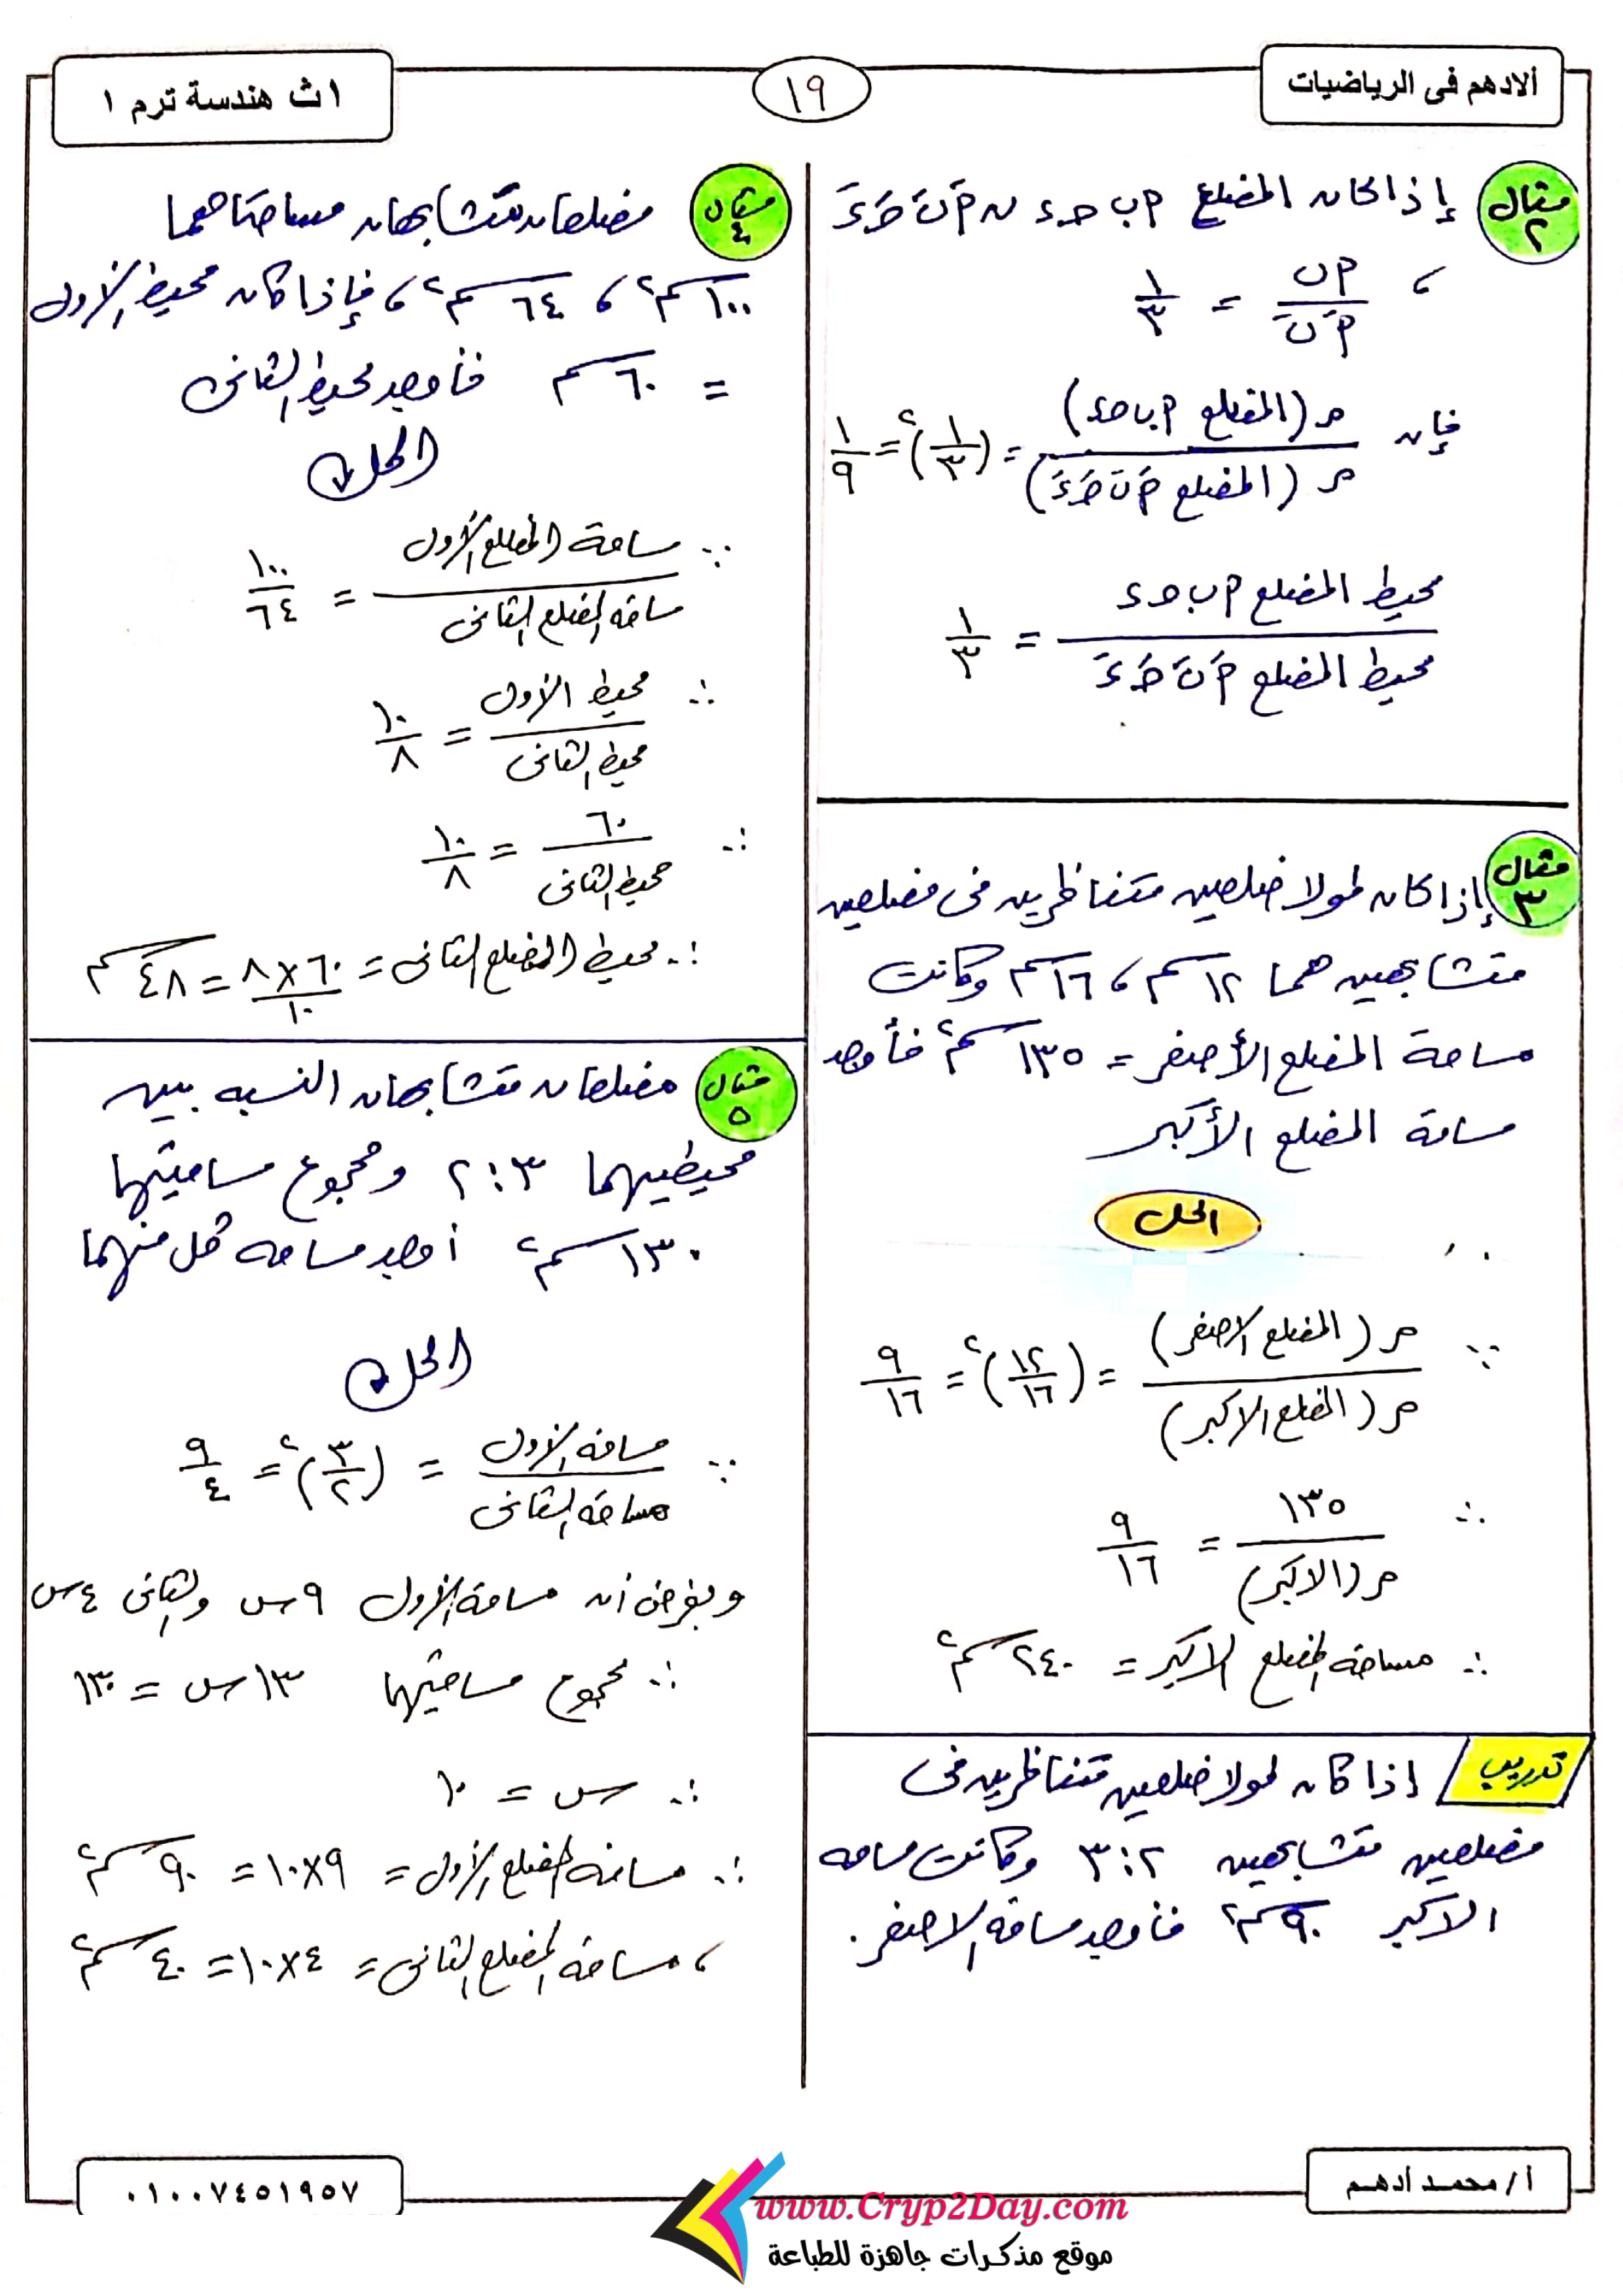 ألادهم فى الرياضيات
١٩
١ ث هندسة ترم ١
مثال ٢
إذا كان المضلع ٢ ب حـ ء ~ ٢َ بَ حـَ ءَ
، ٢ب / ٢َبَ = ١/٣
فإن م (المضلع ٢ ب حـ ء) / م (المضلع ٢َ بَ حـَ ءَ) = (١/٣)٢ = ١/٩
محيط المضلع ٢ ب حـ ء / محيط المضلع ٢َ بَ حـَ ءَ = ١/٣
مثال ٣
إذا كان طولا ضلعين متناظرين فى مضلعين
متشابهين هما ١٢سم ، ١٦سم وكانت
مساحة المضلع الأصغر = ١٣٥سم٢ فأوجد
مساحة المضلع الأكبر
الحل
∵ م (المضلع الاصغر) / م (المضلع الاكبر) = (١٢/١٦)٢ = ٩/١٦
∴ ١٣٥ / م (الاكبر) = ٩/١٦
∴ مساحة المضلع الاكبر = ٢٤٠سم٢
تدريب
إذا كان طولا ضلعين متناظرين فى
مضلعين متشابهين ٢ : ٣ وكانت مساحه
الاكبر ٩٠سم٢ فأوجد مساحة الاصغر .
مثال ٤
مضلعان متشابهان مساحتاهما
١٠٠سم٢ ، ٦٤سم٢ ، فإذا كان محيط الأول
= ٦٠سم فأوجد محيط الثانى
الحل
∵ مساحة المضلع الأول / مساحة المضلع الثانى = ١٠٠/٦٤
∴ محيط الأول / محيط الثانى = ١٠/٨
∴ ٦٠ / محيط الثانى = ١٠/٨
∴ محيط المضلع الثانى = ٨×٦٠/١٠ = ٤٨سم
مثال ٥
مضلعان متشابهان النسبه بين
محيطيهما ٣ : ٢ ومجموع مساحتيهما
١٣٠سم٢ أوجد مساحه كل منهما
الحل
∵ مساحة الأول / مساحة الثانى = (٣/٢)٢ = ٩/٤
وبفرض أن مساحة الأول ٩س والثانى ٤س
∴ مجموع مساحتيهما ١٣س = ١٣٠
∴ س = ١٠
∴ مساحة المضلع الأول = ١٠×٩ = ٩٠سم٢
، مساحة المضلع الثانى = ١٠×٤ = ٤٠سم٢
أ / محمد أدهم
٠١٠٠٧٤٥١٩٥٧
www.Cryp2Day.com
موقع مذكرات جاهزة للطباعة